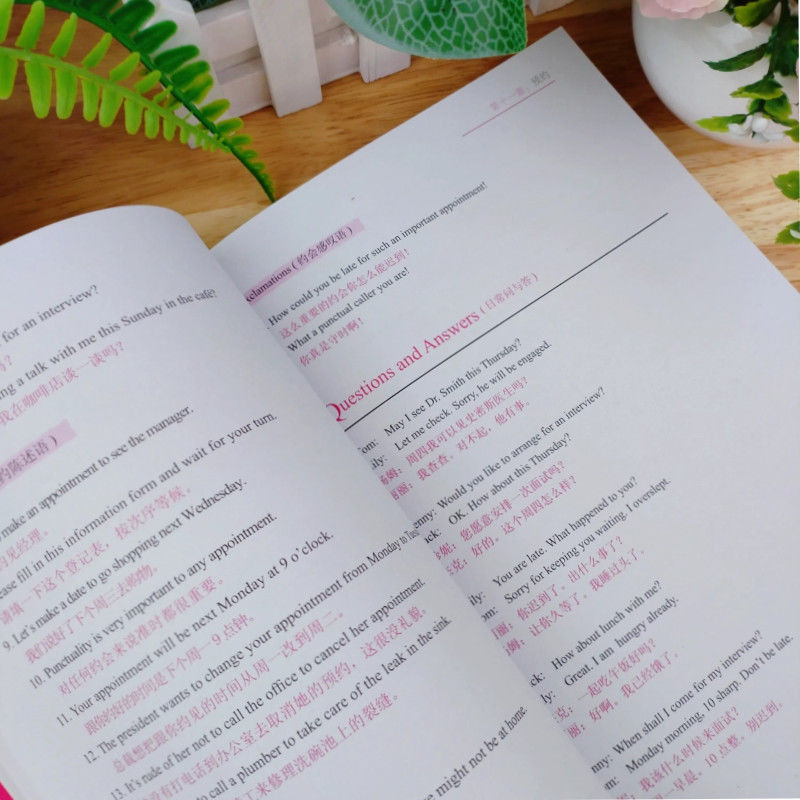 for an interview?
吗？
ing a talk with me this Sunday in the café?
我在咖啡店谈一谈吗？
的陈述语）
make an appointment to see the manager.
约见经理。
ease fill in this information form and wait for your turn.
请填一下这个登记表，按次序等候。
9. Let's make a date to go shopping next Wednesday.
我们说好了下个周三去购物。
10. Punctuality is very important to any appointment.
对任何约会来说准时都很重要。
11. Your appointment will be next Monday at 9 o'clock.
跟你的约见时间是下个周一9点钟。
12. The president wants to change your appointment from Monday to Tues
总裁想把跟你约见的时间从周一改到周二。
13. It's rude of her not to call the office to cancel her appointment.
没有打电话到办公室去取消她的预约，这很没礼貌。
to call a plumber to take care of the leak in the sink.
工来修理洗碗池上的裂缝。
e might not be at home.
第十一章 预约
xclamations（约会感叹语）
How could you be late for such an important appointment!
这么重要的约会你怎么能迟到！
What a punctual caller you are!
你真是守时啊！
Questions and Answers（日常问与答）
om: May I see Dr. Smith this Thursday?
ily: Let me check. Sorry, he will be engaged.
汤姆：周四我可以见史密斯医生吗？
丽：我查查。对不起，他有事。
enny: Would you like to arrange for an interview?
ck: OK. How about this Thursday?
妮：您愿意安排一次面试吗？
克：好的。这个周四怎么样？
ily: You are late. What happened to you?
om: Sorry for keeping you waiting. I overslept.
丽：你迟到了。出什么事了？
姆：让你久等了。我睡过头了。
ck: How about lunch with me?
ly: Great. I am hungry already.
克：一起吃午饭好吗？
丽：好啊。我已经饿了。
nny: When shall I come for my interview?
m: Monday morning, 10 sharp. Don't be late.
我该什么时候来面试？
周一早晨。10点整。别迟到。